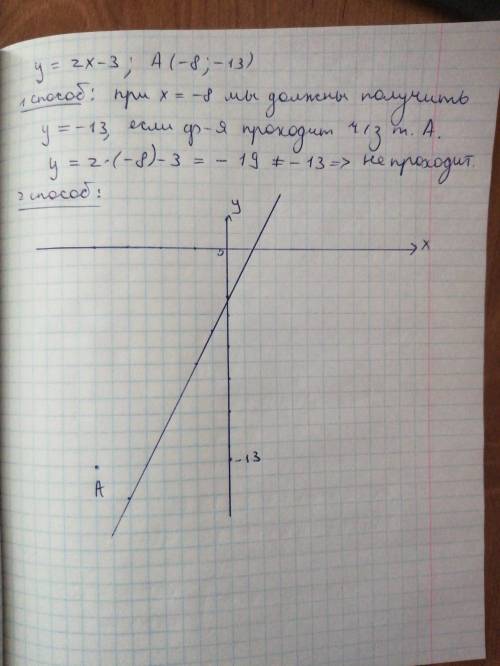 y = 2x-3; A(-8;-13)
1 способ: при x = -8 мы должны получить
y = -13, если ф-я проходит ч/з т. A.
y = 2·(-8)-3 = -19 ≠ -13 => не проходит.
2 способ:
y
0
x
-13
A